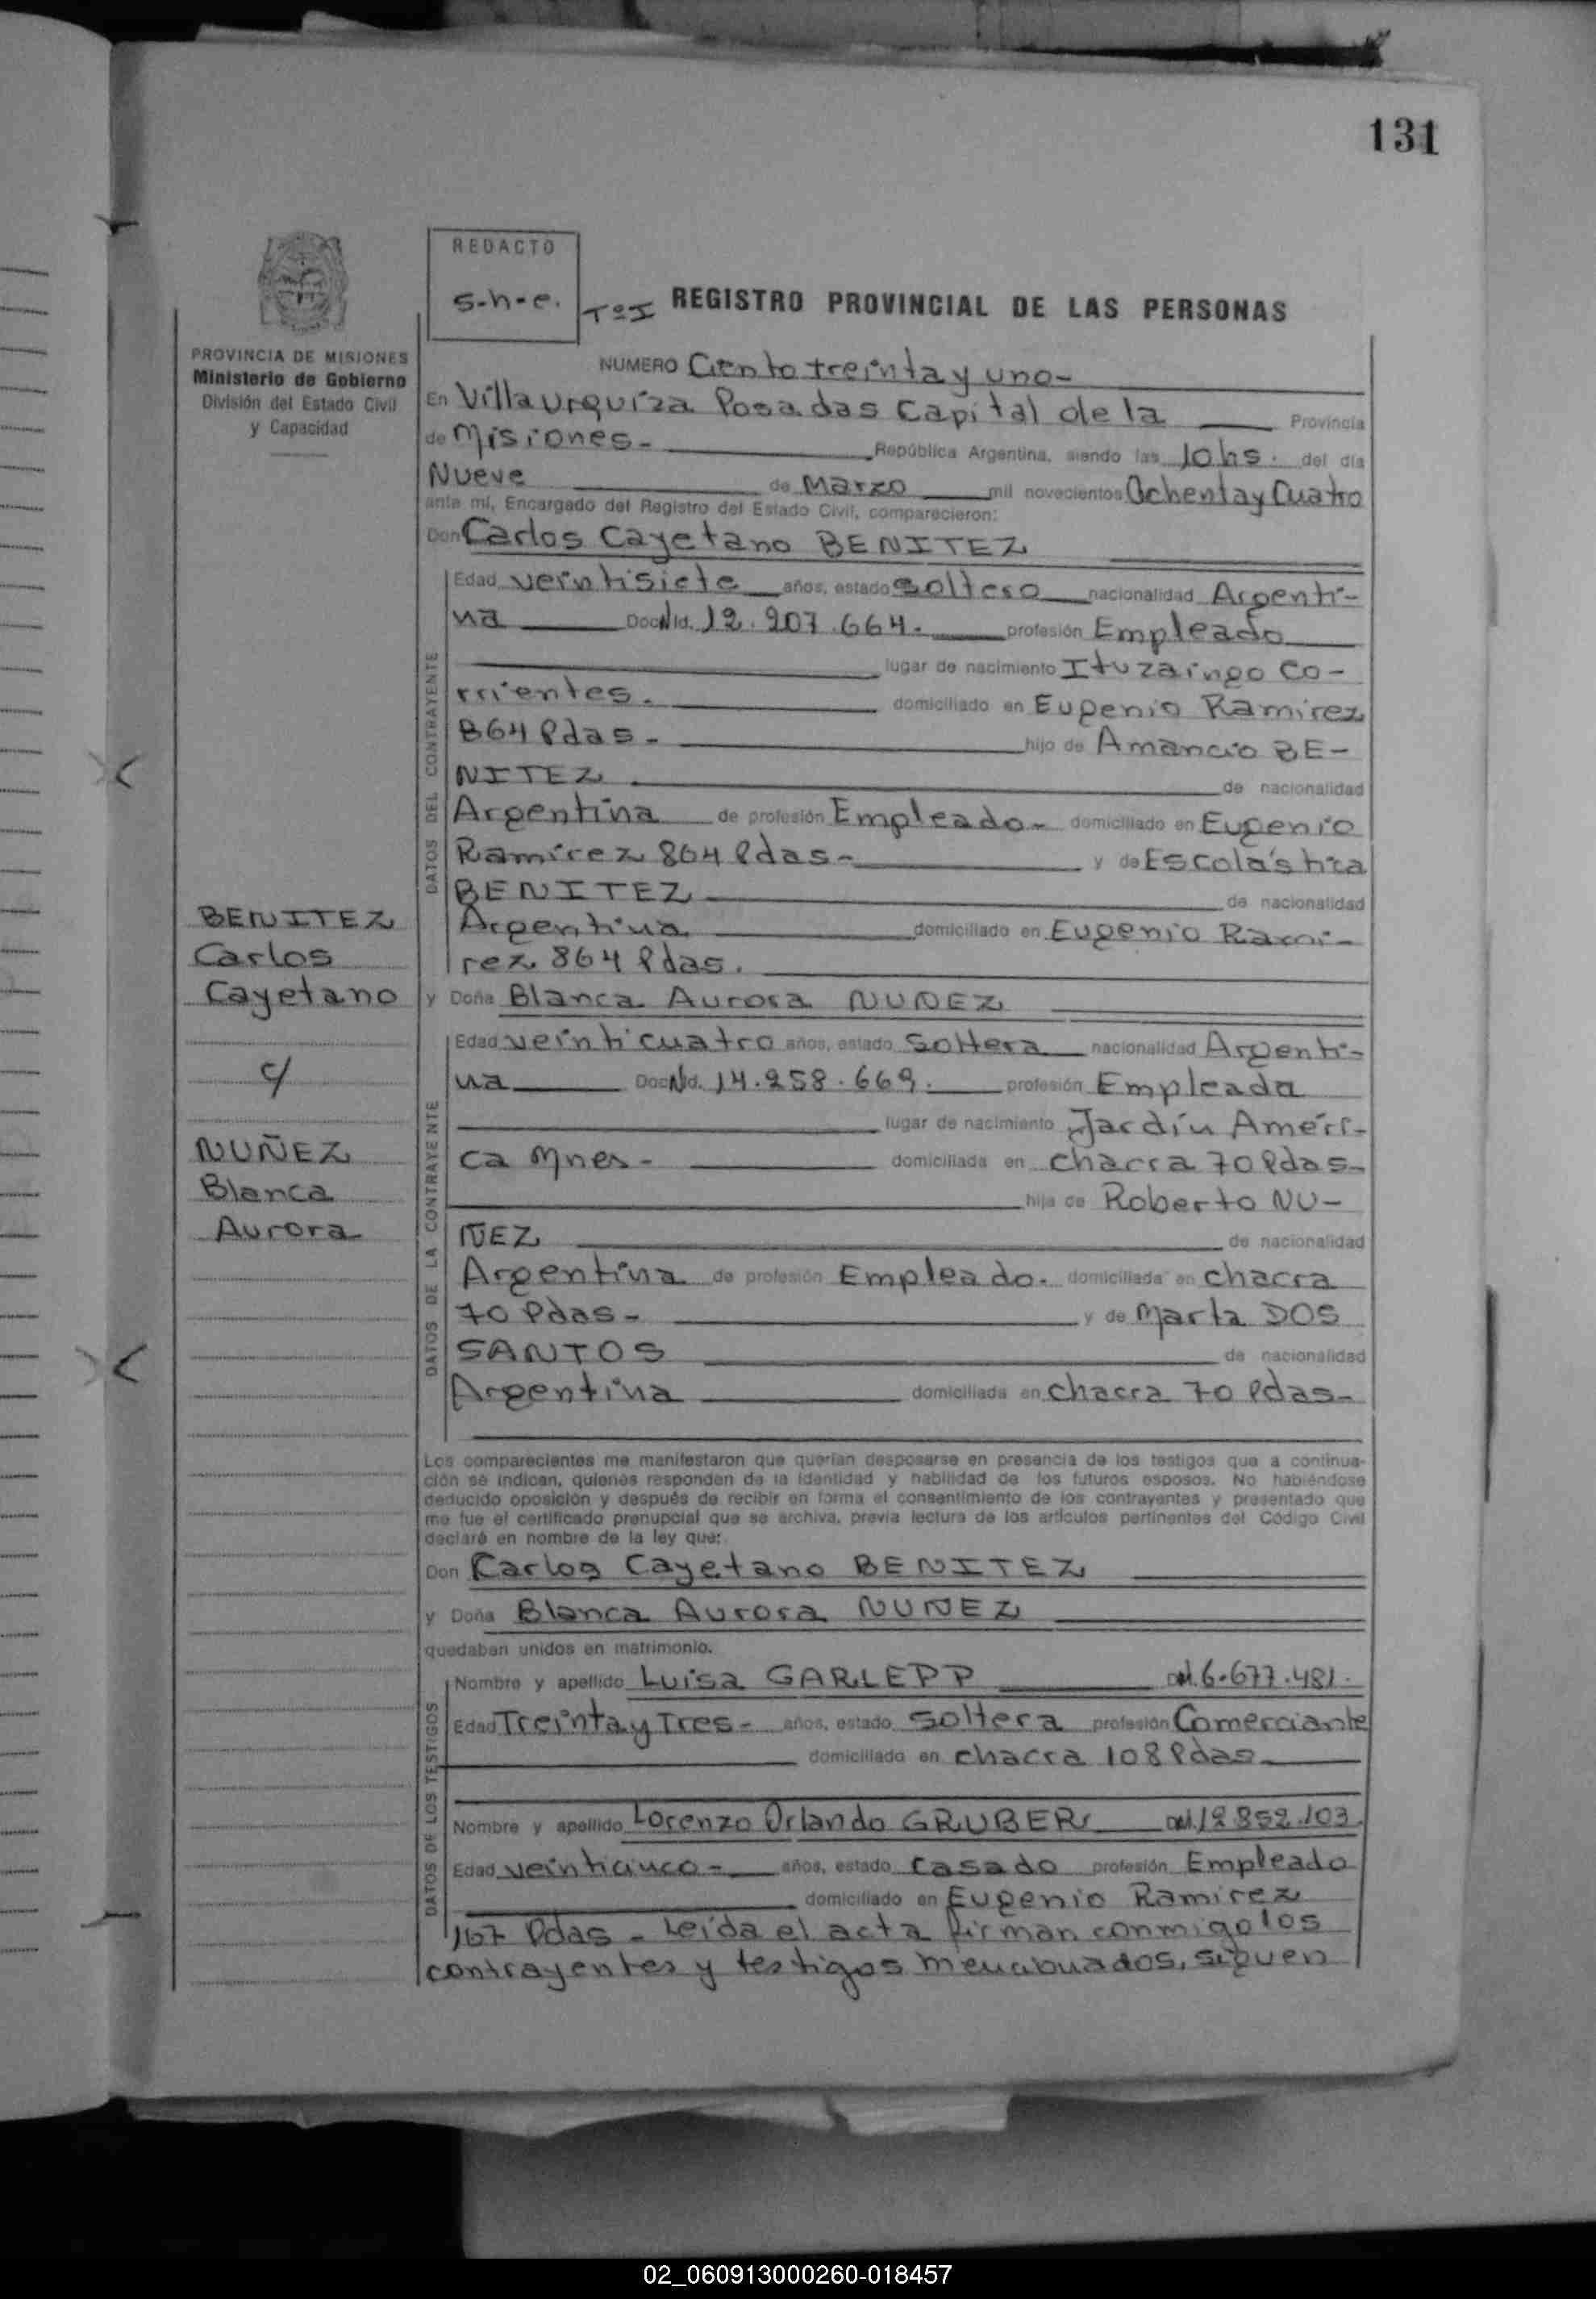 131
REDACTO
s-h-e.
Tº I REGISTRO PROVINCIAL DE LAS PERSONAS
PROVINCIA DE MISIONES
Ministerio de Gobierno
División del Estado Civil
y Capacidad
NUMERO Ciento treinta y uno-
En Villa Urquiza Posadas Capital de la Provincia
de Misiones- República Argentina, siendo las 10 hs. del día
Nueve de Marzo mil novecientos Ochenta y Cuatro
ante mí, Encargado del Registro del Estado Civil, comparecieron:
Don Carlos Cayetano BENITEZ
DATOS DEL CONTRAYENTE
Edad veintisiete años, estado soltero nacionalidad Argenti-
na Doc. NId. 12.207.664. profesión Empleado
lugar de nacimiento Ituzaingo Co-
rrientes. domiciliado en Eugenio Ramirez
864 Pdas- hijo de Amancio BE-
NITEZ de nacionalidad
Argentina de profesión Empleado- domiciliado en Eugenio
Ramirez 864 Pdas- y de Escolástica
BENITEZ de nacionalidad
Argentina domiciliado en Eugenio Rami-
rez 864 Pdas.
BENITEZ
Carlos
Cayetano
c/
NUÑEZ
Blanca
Aurora
y Doña Blanca Aurora NUÑEZ
DATOS DE LA CONTRAYENTE
Edad veinticuatro años, estado Soltera nacionalidad Argenti-
na Doc. Nd. 14.258.669. profesión Empleada
lugar de nacimiento Jardín Améri-
ca Mnes- domiciliada en chacra 70 Pdas-
hija de Roberto NU-
ÑEZ de nacionalidad
Argentina de profesión Empleado. domiciliada en chacra
70 Pdas- y de Marta DOS
SANTOS de nacionalidad
Argentina domiciliada en chacra 70 Pdas-
Los comparecientes me manifestaron que querían desposarse en presencia de los testigos que a continua-
ción se indican, quienes responden de la identidad y habilidad de los futuros esposos. No habiéndose
deducido oposición y después de recibir en forma el consentimiento de los contrayentes y presentado que
me fue el certificado prenupcial que se archiva, previa lectura de los artículos pertinentes del Código Civil
declaré en nombre de la ley que:
Don Carlos Cayetano BENITEZ
y Doña Blanca Aurora NUÑEZ
quedaban unidos en matrimonio.
DATOS DE LOS TESTIGOS
Nombre y apellido Luisa GARLEPP 6.677.481.
Edad Treinta y Tres- años, estado soltera profesión Comerciante
domiciliado en chacra 108 Pdas
Nombre y apellido Lorenzo Orlando GRUBER 12.852.103
Edad veinticinco- años, estado casado profesión Empleado
domiciliado en Eugenio Ramirez
167 Pdas - Leída el acta firman conmigo los
contrayentes y testigos mencionados, siguen
02_060913000260-018457